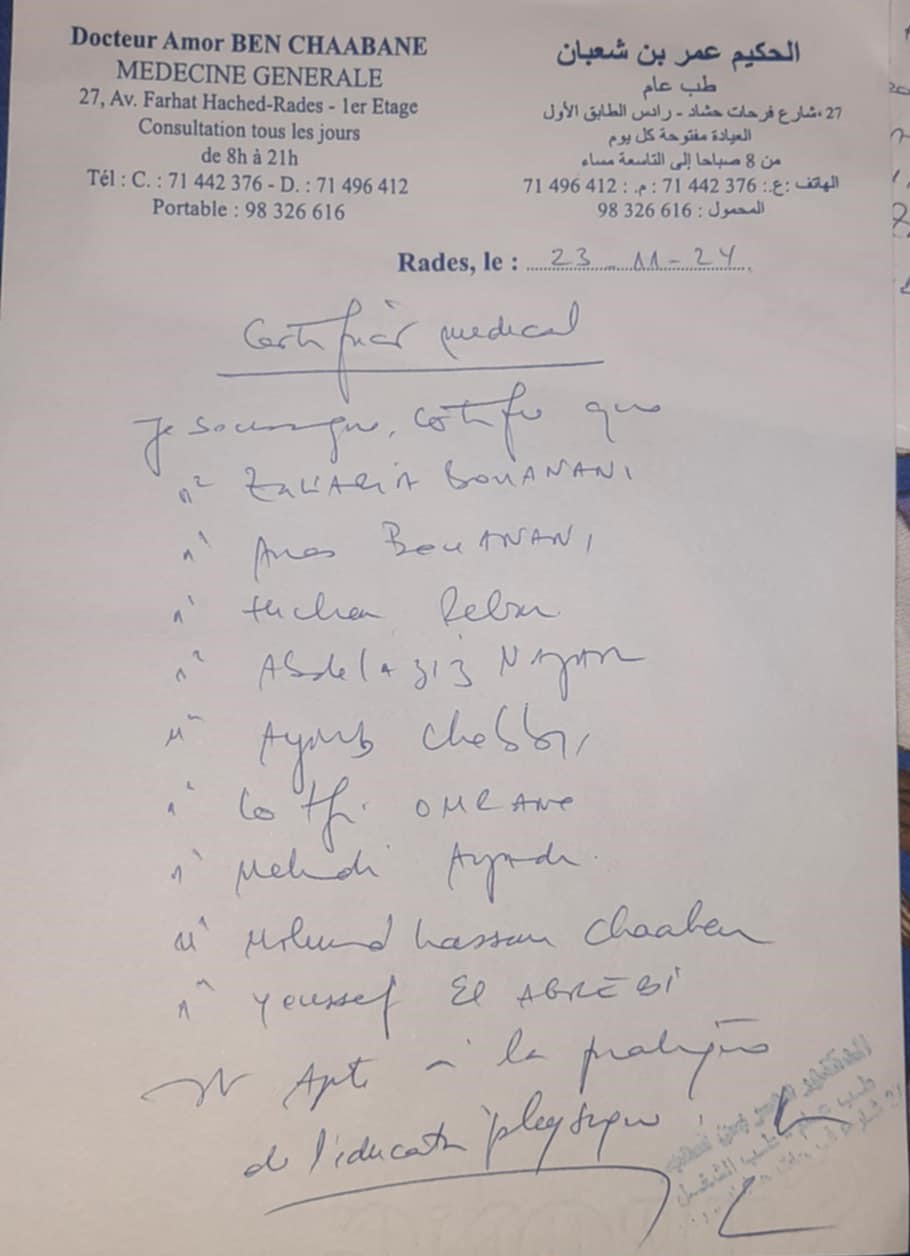 Docteur Amor BEN CHAABANE
MEDECINE GENERALE
27, Av. Farhat Hached-Rades - 1er Etage
Consultation tous les jours
de 8h à 21h
Tél : C. : 71 442 376 - D. : 71 496 412
Portable : 98 326 616
الحكيم عمر بن شعبان
طب عام
27، شارع فرحات حشاد - رادس الطابق الأول
العيادة مفتوحة كل يوم
من 8 صباحا إلى التاسعة مساء
الهاتف :ع.: 71 442 376 : م. : 71 496 412
المحمول : 98 326 616
Rades, le : 23 - 11 - 24
Certificat medical
Je soussigne, certifie que
Zakaria BOUANANI
Anas BOUANANI
Hichem
Abdelaziz
Ayoub Chebbi
Lotfi OMRANE
Mehdi Ayadi
Mohamed hassan Chaaben
Youssef El AGREBI
Apte à la pratique
de l'education physique